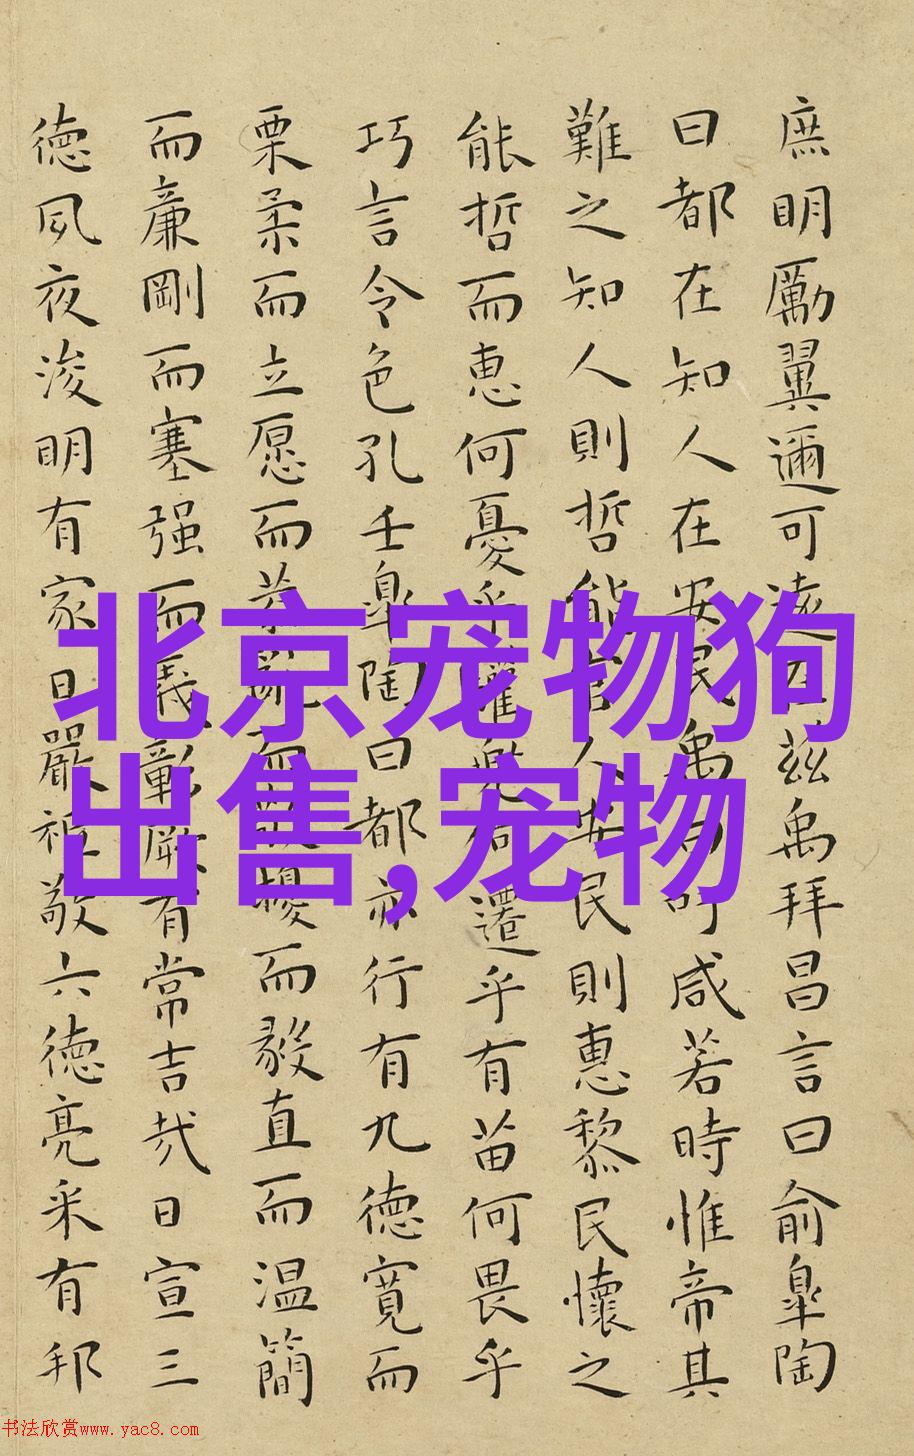 庶明厲翼邇可遠在茲禹拜昌言曰俞皐陶
曰都在知人在安民禹曰吁咸若時惟帝其
難之知人則哲能官人安民則惠黎民懷之
能哲而惠何憂乎驩兜何遷乎有苗何畏乎
巧言令色孔壬皐陶曰都亦行有九德寬而
栗柔而立愿而恭亂而敬擾而毅直而温簡
而廉剛而塞强而義彰厥有常吉哉日宣三
德夙夜浚明有家日嚴祗敬六德亮采有邦
北京宠物狗
出售,宠物
书法欣赏www.yac8.com